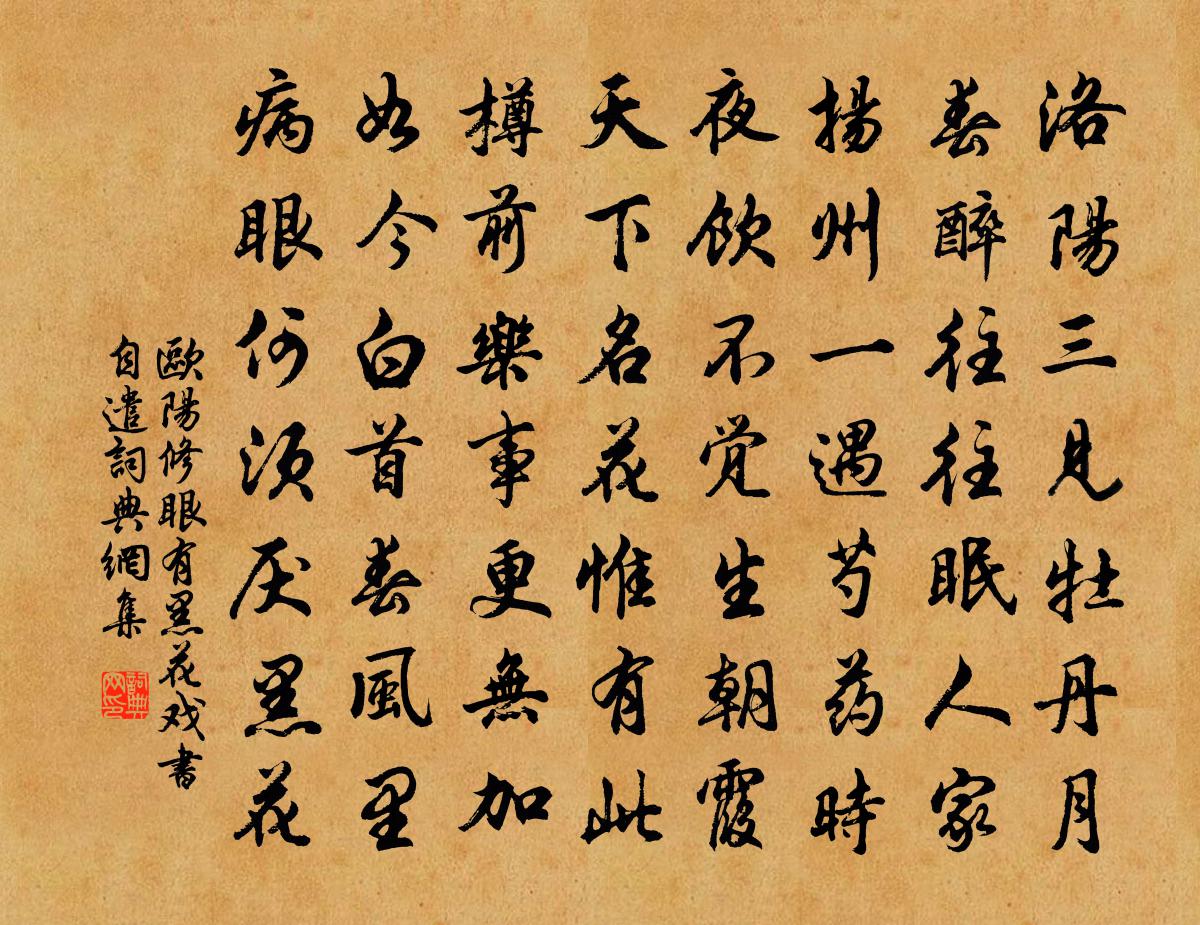 洛陽三見牡丹月
春醉往往眠人家
揚州一遇芍药時
夜飲不觉生朝霞
天下名花惟有此
樽前樂事更無加
如今白首春風里
病眼何须厌黑花
歐陽修眼有黑花戏書
自遣詞典網集
詞典网印